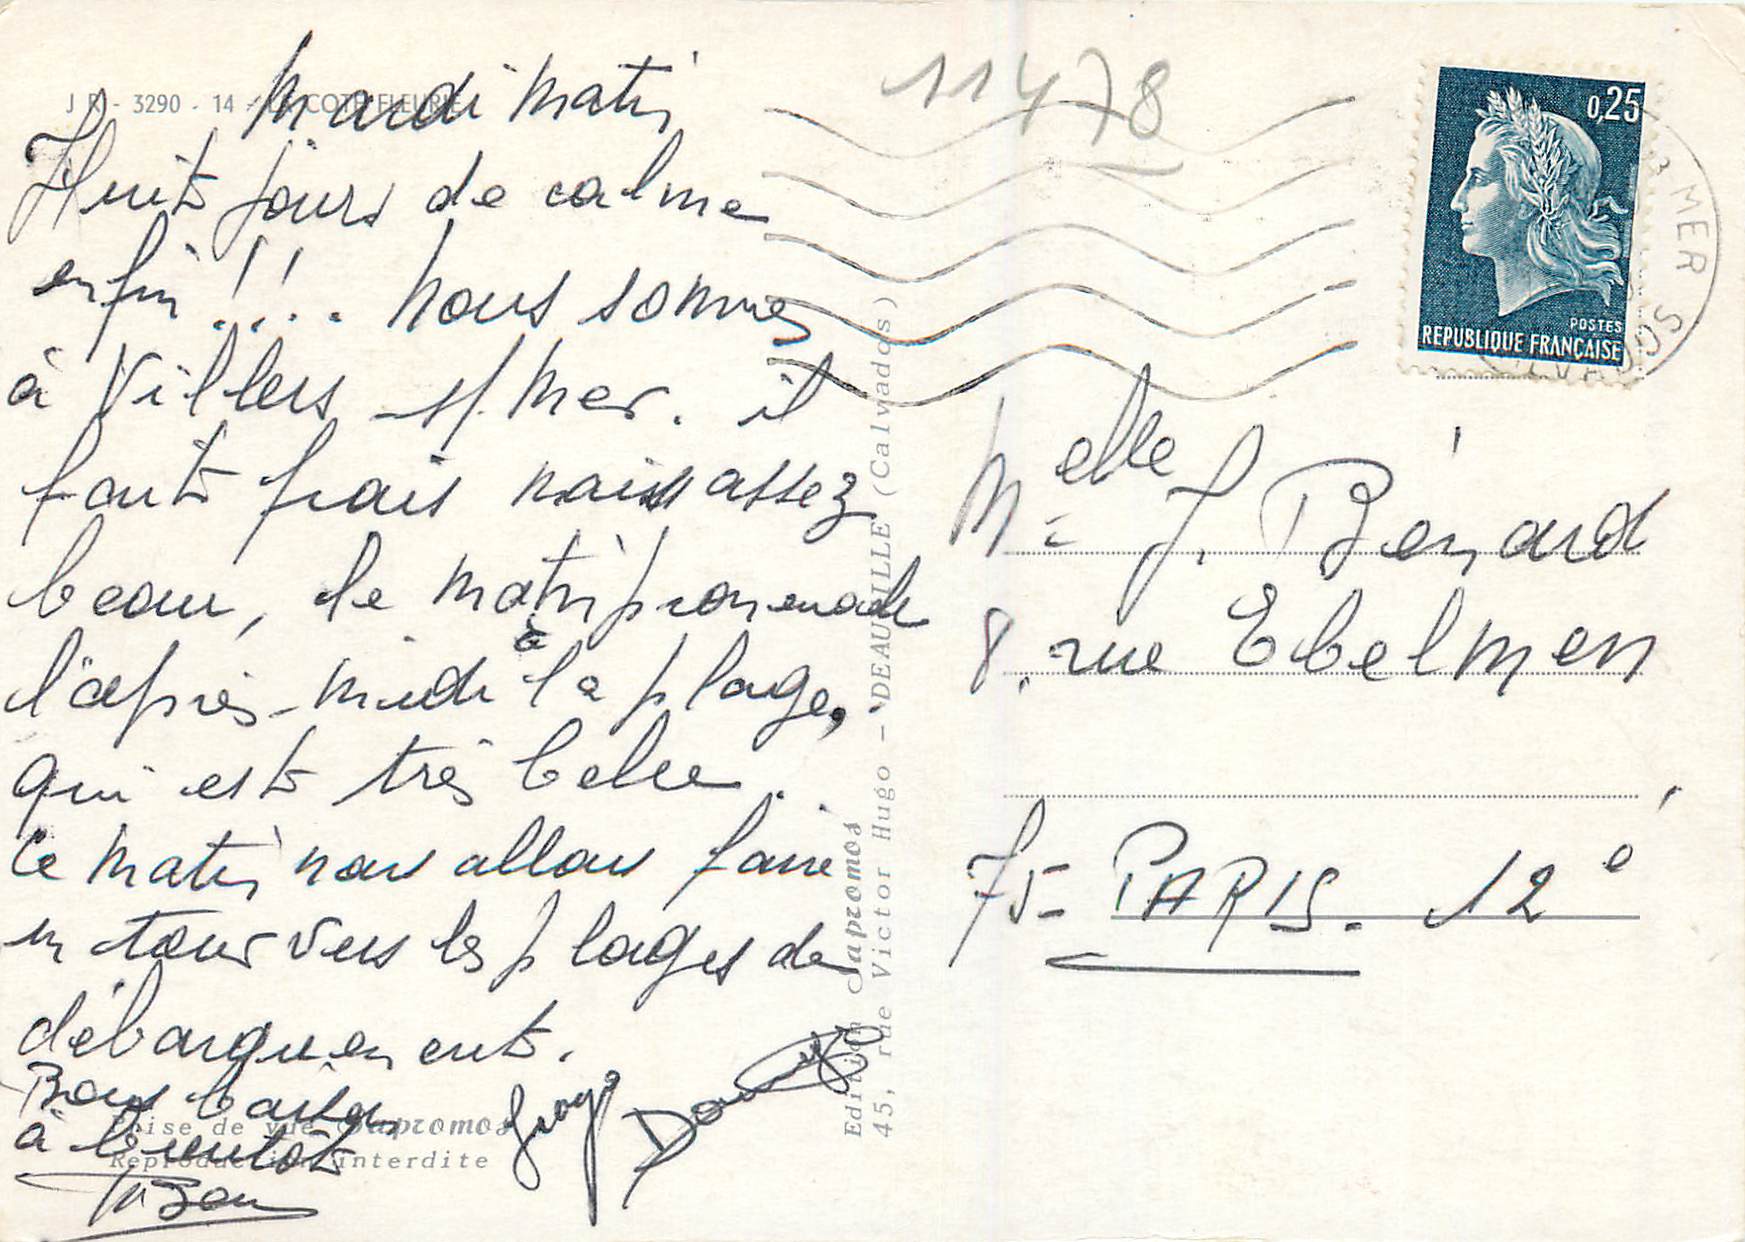 J P - 3290 - 14 - LA COTE FLEURIE
Mardi Matin
Huit jours de calme
enfin !!! . Nous sommes
à Villers s/ Mer. il
fait frais mais assez
beau, le matin promenade
l'après-midi à la plage,
qui est très belle.
Ce matin nous allons faire
un tour vers les plages de
débarquement.
Bons baisers
à bientôt
Prise de vue Sapromos
Reproduction interdite
Edition Sapromos
45, rue Victor Hugo - DEAUVILLE (Calvados)
11478
0,25
POSTES
REPUBLIQUE FRANÇAISE
S MER
CALVADOS
Melle J. Bénard
8, rue Ebelmen
75 - PARIS. 12e